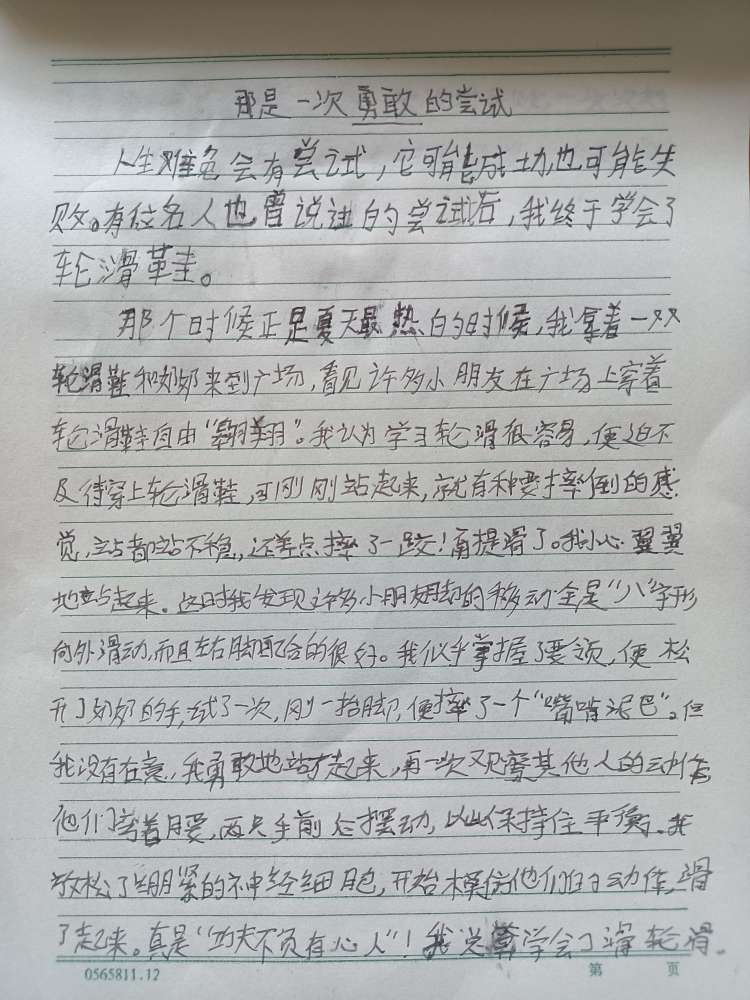 那是一次勇敢的尝试
人生难免会有尝试，它可能成功也可能失
败。有位名人也曾说过的尝试后，我终于学会了
轮滑鞋。
那个时候正是夏天最热的时候，我拿着一双
轮滑鞋和奶奶来到广场，看见许多小朋友在广场上穿着
轮滑鞋自由“翱翔”。我认为学习轮滑很容易，便迫不
及待穿上轮滑鞋，可刚刚站起来，就有种要摔倒的感
觉，站都站不稳，还差点摔了一跤！甭提滑了。我小心翼翼
地站起来。这时我发现许多小朋友脚的移动全是“八”字形
向外滑动，而且左右脚配合的很好。我似乎掌握了要领，便松
开了奶奶的手，试了一次，刚一抬脚，便摔了一个“嘴啃泥巴”。但
我没有在意，我勇敢地站了起来，再一次观察其他人的动作，
他们弯着腰，两只手前后摆动，以此保持住平衡。我
放松了绷紧的神经细胞，开始模仿他们的动作，滑
了起来。真是“功夫不负有心人”！我学会了滑轮滑。
0565811.12
第 页